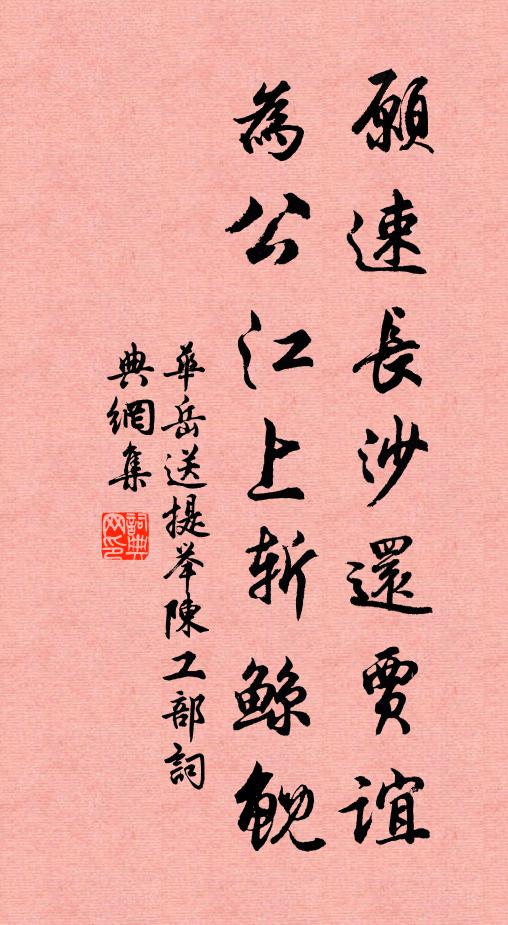 願速長沙還賈誼
為公江上斬鯨鯢
華岳送提举陳工部詞
典網集
詞典網印